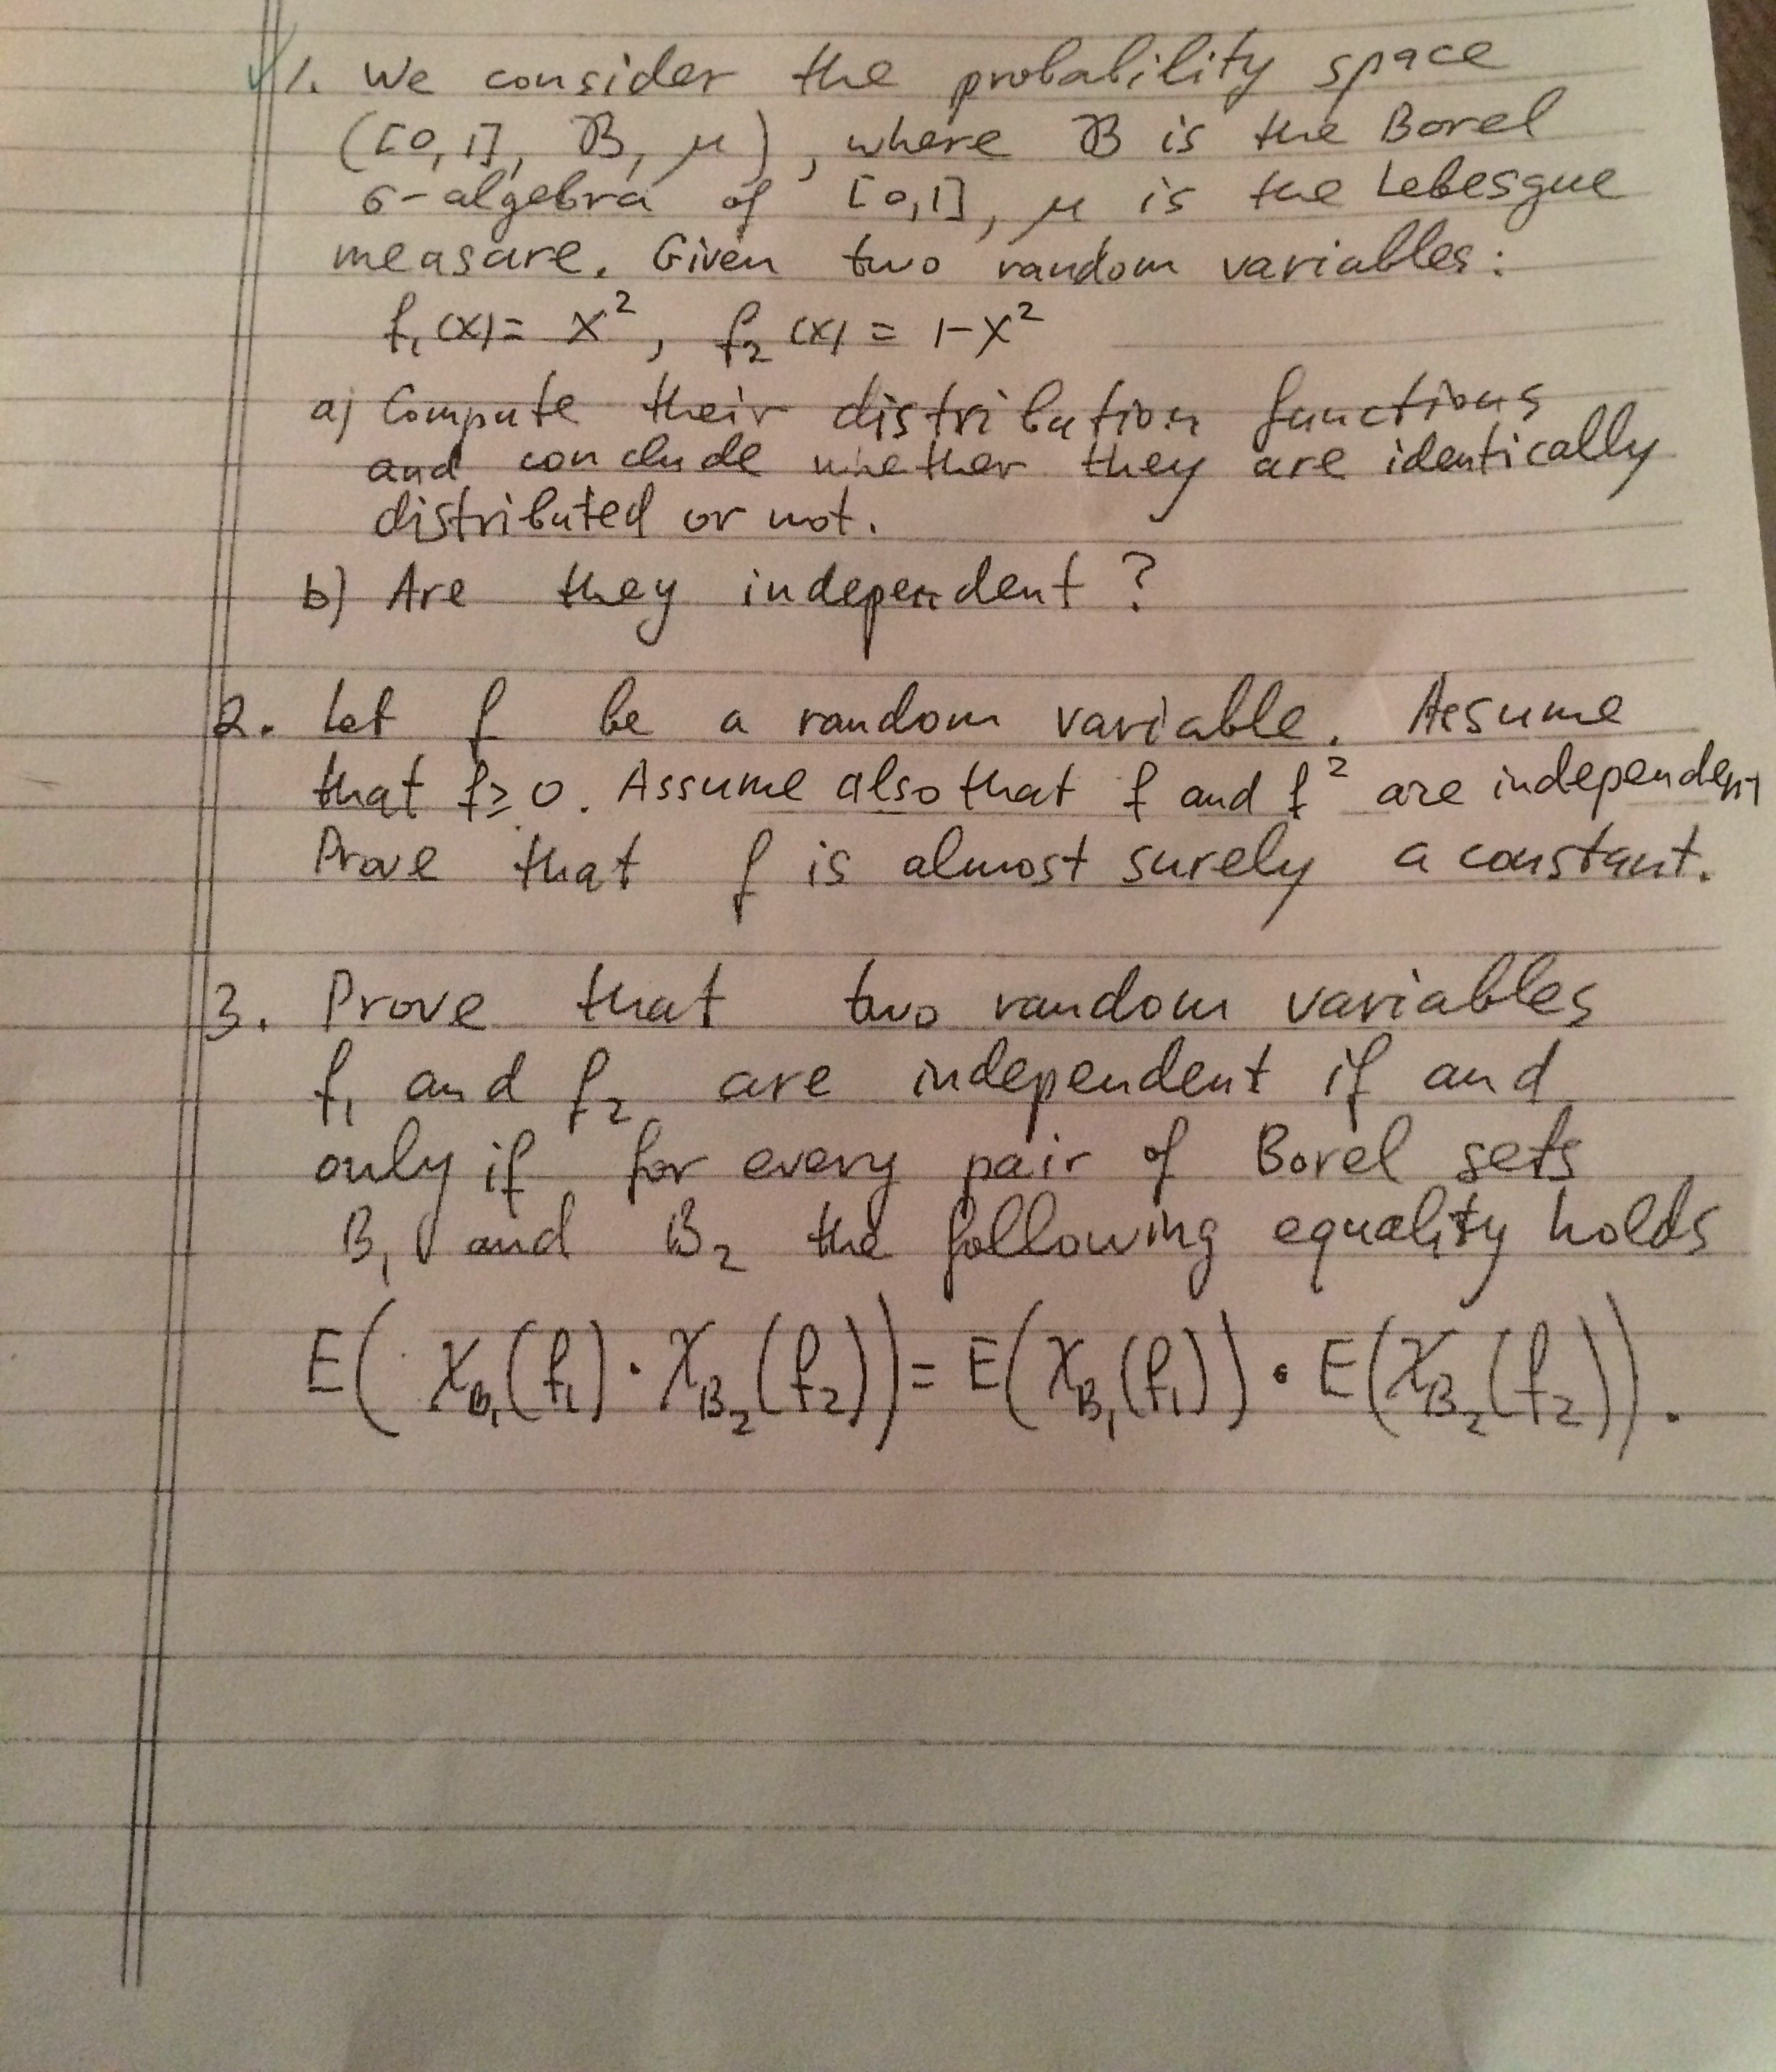 1. We consider the probability space
([0,1], ℬ, μ), where ℬ is the Borel
σ-algebra of [0,1], μ is the Lebesgue
measure. Given two random variables:
f₁(x) = x², f₂(x) = 1-x²
a) Compute their distribution functions
and conclude whether they are identically
distributed or not.
b) Are they independent?
2. Let f be a random variable. Assume
that f≥0. Assume also that f and f² are independent
Prove that f is almost surely a constant.
3. Prove that two random variables
f₁ and f₂ are independent if and
only if for every pair of Borel sets
B₁ and B₂ the following equality holds
E(χ_B₁(f₁)·χ_B₂(f₂)) = E(χ_B₁(f₁))·E(χ_B₂(f₂)).